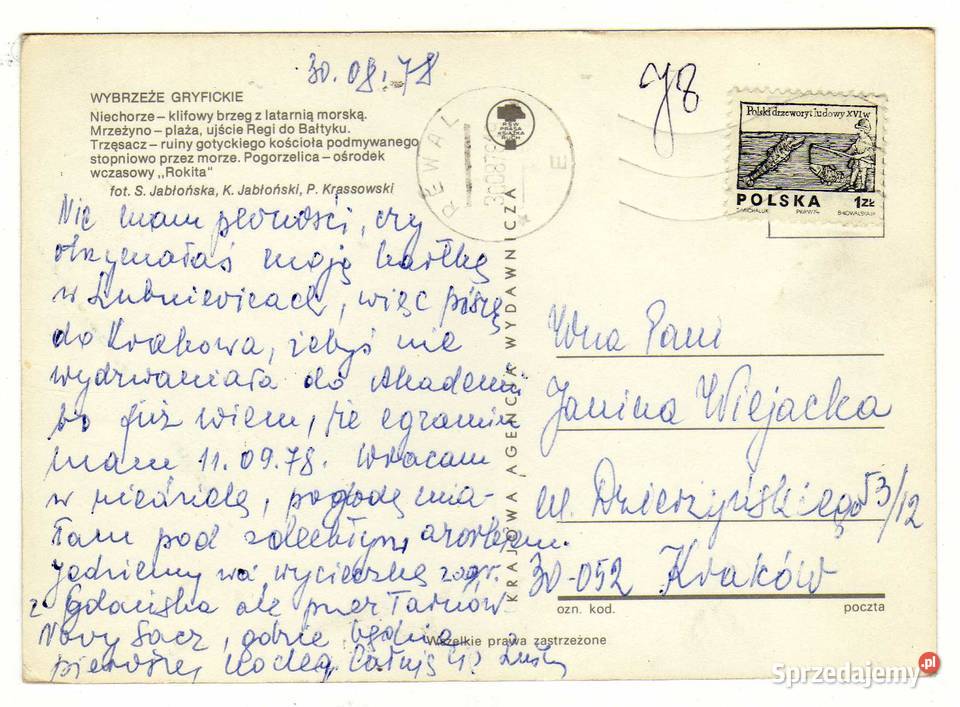 30.08.78
WYBRZEŻE GRYFICKIE
Niechorze – klifowy brzeg z latarnią morską.
Mrzeżyno – plaża, ujście Regi do Bałtyku.
Trzęsacz – ruiny gotyckiego kościoła podmywanego
stopniowo przez morze. Pogorzelica – ośrodek
wczasowy „Rokita"
fot. S. Jabłońska, K. Jabłoński, P. Krassowski
Nie mam pewności, czy
otrzymałaś moją kartkę
w Lubniewicach, więc piszę
do Krakowa, żebyś nie
wydzwaniała do Akademii
bo już wiem, że egzamin
mam 11.09.78. Wracam
w niedzielę, pogodę mia-
łam pod zdechłym
Jedziemy na wycieczkę
z Gdańska ale przez Tarnów
Nowy Sącz, gdzie będzie
pierwszy nocleg. Całuję
REWAL
E
RSW
PRASA
KSIĄŻKA
RUCH
KRAJOWA AGENCJA WYDAWNICZA
Wszelkie prawa zastrzeżone
78
Polski drzeworyt ludowy XVI w
POLSKA 1ZŁ
Wna Pani
Janina Wiejacka
ul. Dzierżyńskiego 53/12
30-052 Kraków
ozn. kod. poczta
Sprzedajemy.pl